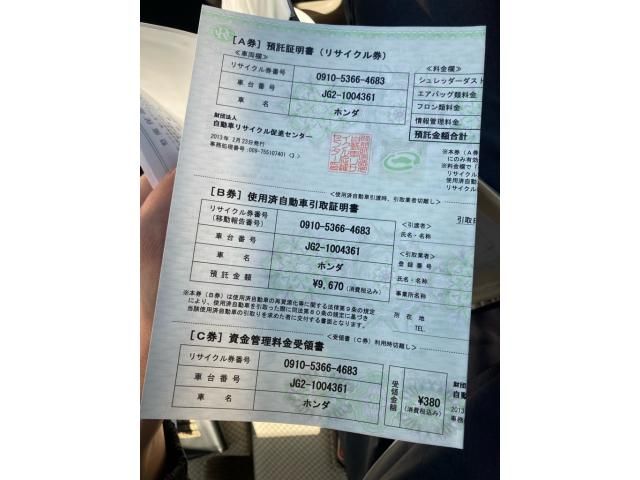 [A券] 預託証明書 (リサイクル券)
<車両欄>
<料金欄>
リサイクル券番号 0910-5366-4683
シュレッダーダスト
車台番号 JG2-1004361
エアバッグ類料金
車名 ホンダ
フロン類料金
情報管理料金
預託金額合計
財団法人
自動車リサイクル促進センター
2013年 2月23日発行
※本券(A券
にのみ有効
※料金欄で
リサイクル
自動車
リサイクル
[B券] 使用済自動車引取証明書
<使用済自動車引渡時、引取業者切離し>
引取日
リサイクル券番号
(移動報告番号) 0910-5366-4683
<引渡者>
氏名・名称
車台番号 JG2-1004361
<引取業者>
登録番号
車名 ホンダ
氏名・名称
預託金額 ¥9,670 (消費税込み)
事業所名称
※本券(B券)は使用済自動車の再資源化等に関する法律第9条の規定
により、使用済自動車を引取った際に同法第80条の規定に基づき
当該使用済自動車の引取りを求めた者に交付する書面となります。
所在地
TEL.
[C券] 資金管理料金受領書
<受領書(C券)利用時切離し>
リサイクル券番号 0910-5366-4683
車台番号 JG2-1004361
車名 ホンダ
受領金額 ¥380 (消費税込み)
財団
自動
2013